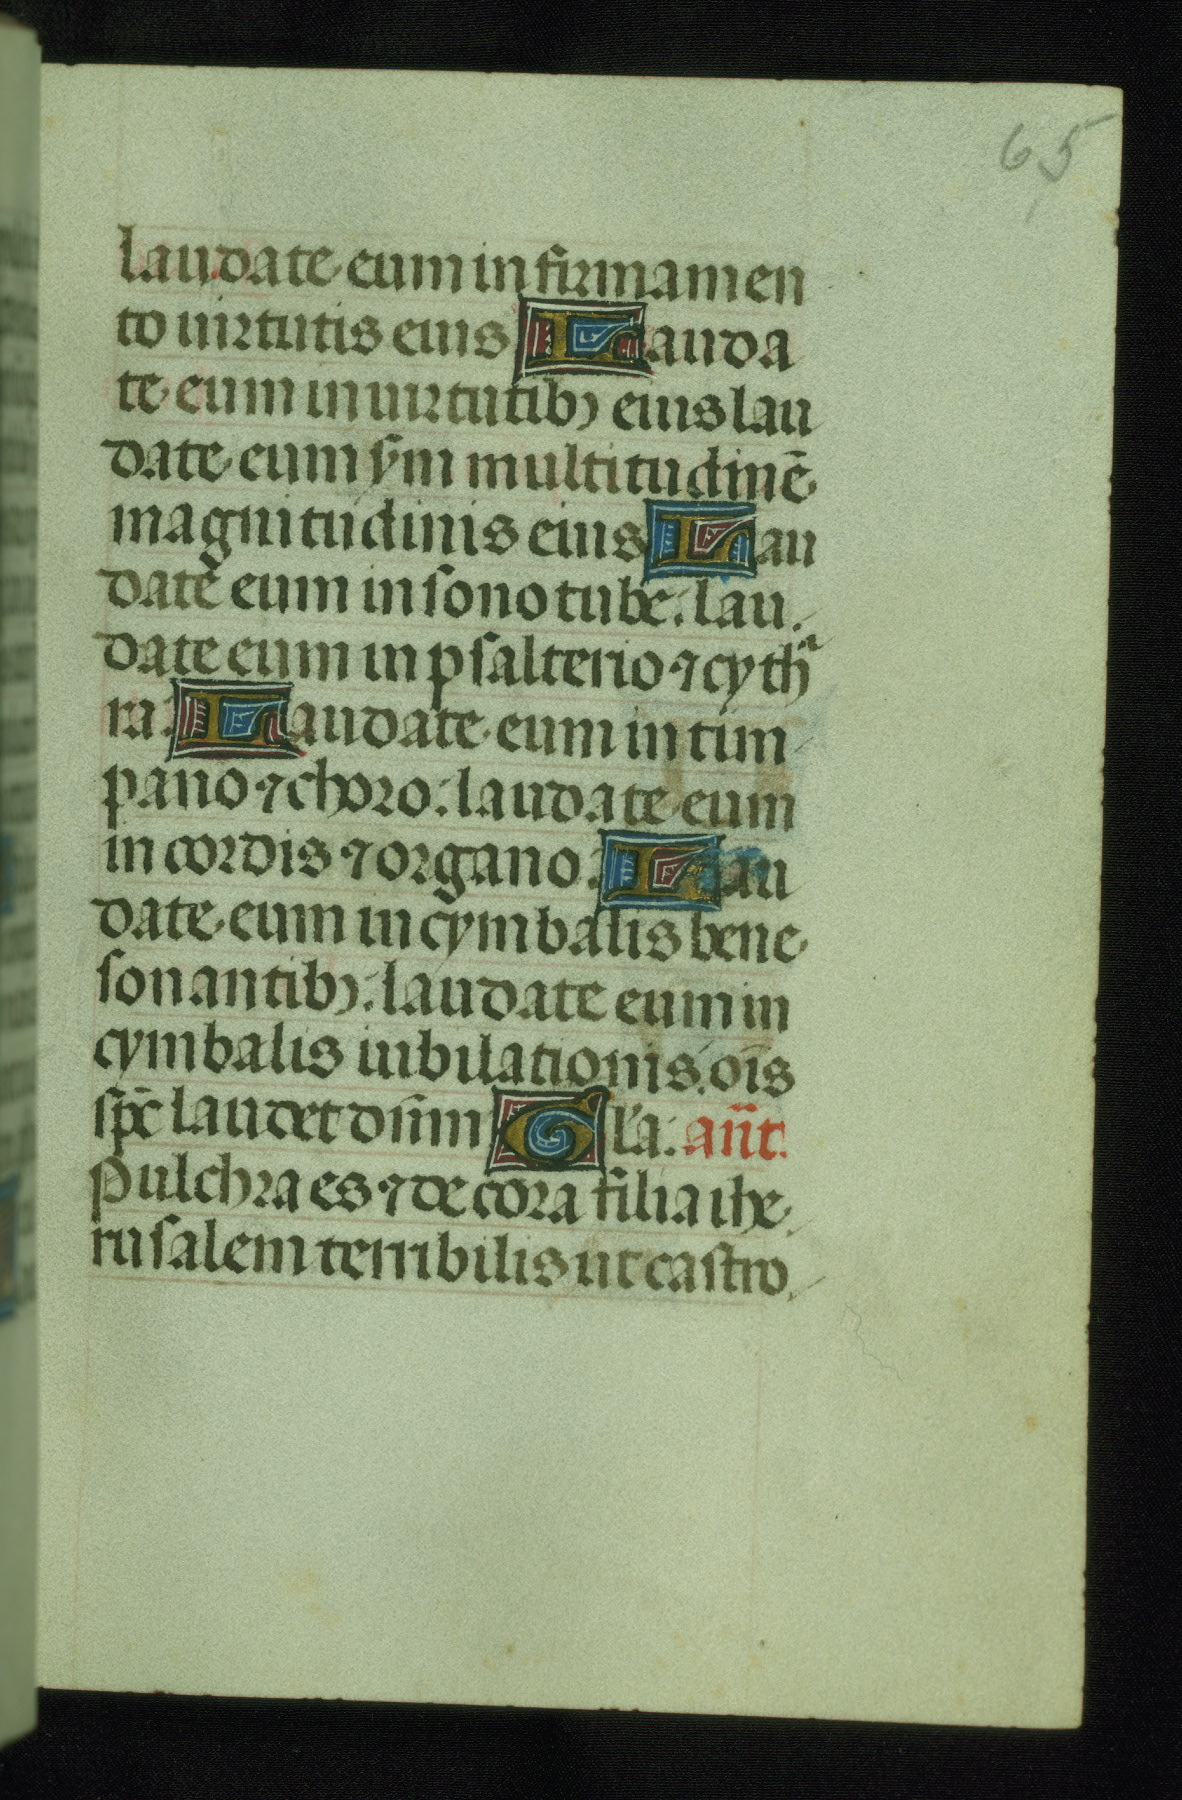 65
laudate eum in firmamen
to uirtutis eius Lauda
te eum in uirtutibꝫ eius lau
date eum sm̄ multitudinē
magnitudinis eius Lau
date eum in sono tube. lau
date eum in psalterio ⁊ cyth
ra. Laudate eum in tim
pano ⁊ choro. laudate eum
in cordis ⁊ organo. Lau
date eum in cymbalis bene
sonantibꝫ. laudate eum in
cymbalis iubilationis. oīs
sp̄c laudet dn̄m Gl̄a. an̄t.
Pulchra es ⁊ decora filia ihe
rusalem terribilis ut castro